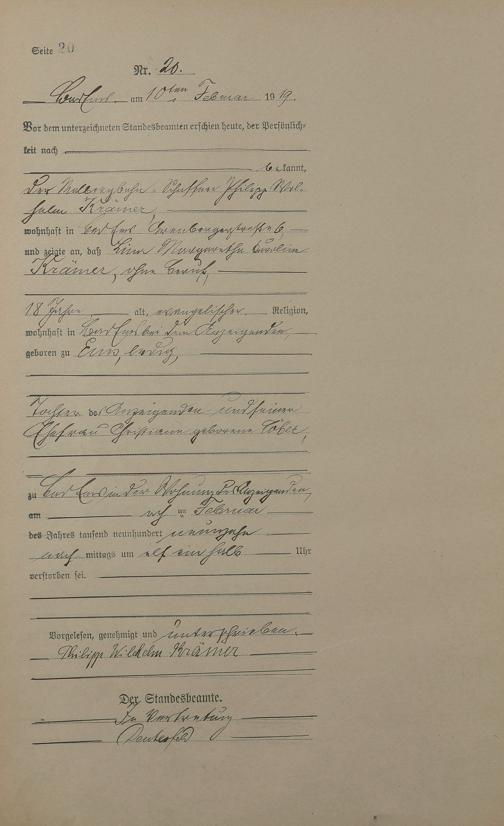 Seite 20
Nr. 20.
Bad Ems am 10ten Februar 1919.
Vor dem unterzeichneten Standesbeamten erschien heute, der Persönlich-
keit nach
bekannt,
der Malbergbahn-Schaffner Philipp Wil-
helm Krämer,
wohnhaft in Bad Ems 6
und zeigte an, daß Lina Margaretha Karoline
Krämer, ohne Beruf,
18 Jahre alt, evangelischer Religion,
wohnhaft in Bad Ems bei dem Anzeigenden,
geboren zu Ems, ledig,
Tochter des Anzeigenden und seiner
Ehefrau Christiane geborene
zu Bad Ems in der Wohnung des Anzeigenden,
am Februar
des Jahres tausend neunhundert neunzehn
nach mittags um elf ein halb Uhr
verstorben sei.
Vorgelesen, genehmigt und unterschrieben.
Philipp Wilhelm Krämer
Der Standesbeamte.
In Vertretung